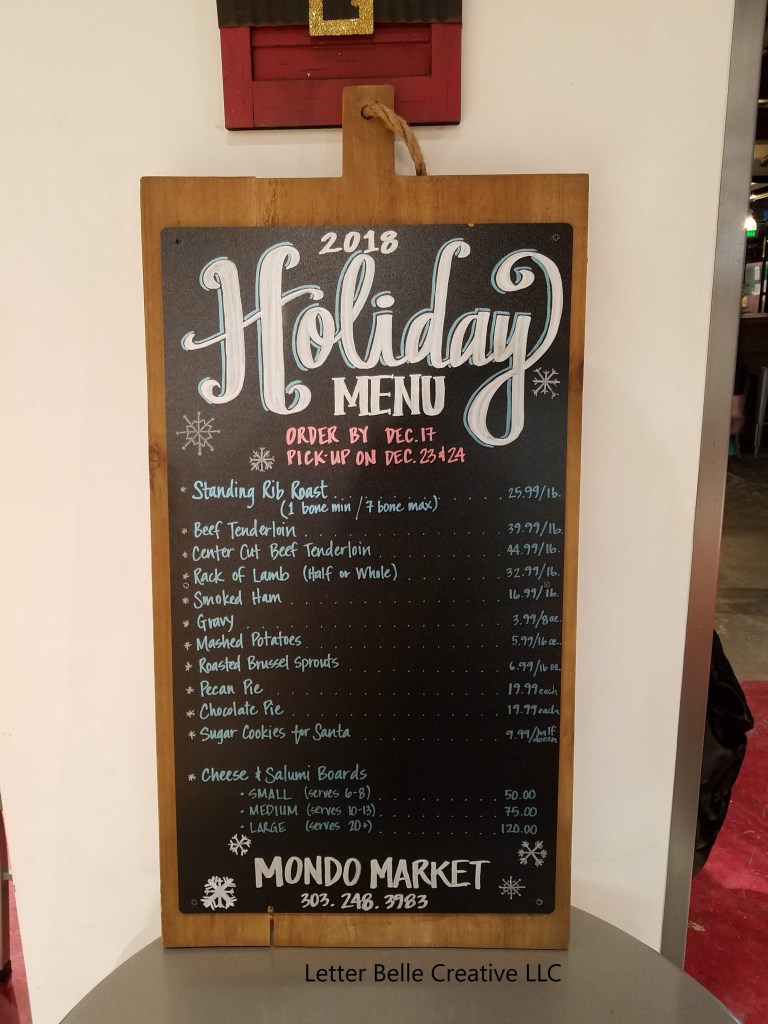 2018
Holiday
MENU
ORDER BY DEC. 17
PICK-UP ON DEC. 23 & 24
* Standing Rib Roast . . . . . . . . . . 25.99/lb.
(1 bone min / 7 bone max)
* Beef Tenderloin . . . . . . . . . . 39.99/lb.
* Center Cut Beef Tenderloin . . . . . . . . . . 44.99/lb.
* Rack of Lamb (Half or Whole) . . . . . . . . . . 32.99/lb.
* Smoked Ham . . . . . . . . . . 16.99/lb.
* Gravy . . . . . . . . . . 3.99/8oz.
* Mashed Potatoes . . . . . . . . . . 5.99/16oz.
* Roasted Brussel Sprouts . . . . . . . . . . 6.99/16oz.
* Pecan Pie . . . . . . . . . . 19.99 each
* Chocolate Pie . . . . . . . . . . 19.99 each
* Sugar Cookies for Santa . . . . . . . . . . 9.99/half dozen
* Cheese & Salumi Boards
• SMALL (serves 6-8) . . . . . . . . . . 50.00
• MEDIUM (serves 10-13) . . . . . . . . . . 75.00
• LARGE (serves 20+) . . . . . . . . . . 120.00
MONDO MARKET
303.248.3983
Letter Belle Creative LLC